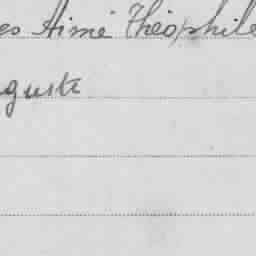 es Aimé Théophile
guste